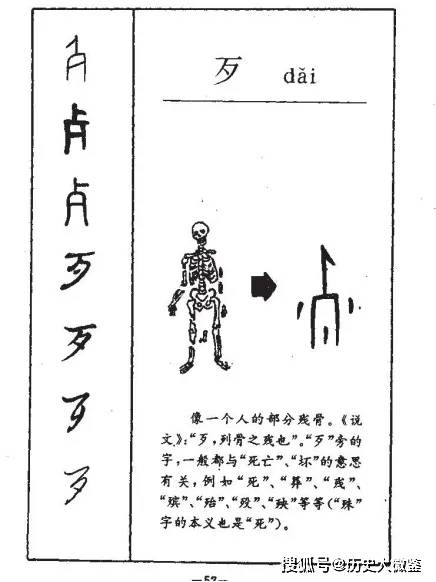 歹 dǎi
像一个人的部分残骨。《说
文》:“歹,列骨之残也”。“歹”旁的
字,一般都与“死亡”、“坏”的意思
有关,例如“死”、“葬”、“残”、
“殡”、“殆”、“殁”、“殃”等等(“殊”
字的本义也是“死”)。
搜狐号@历史大微鉴